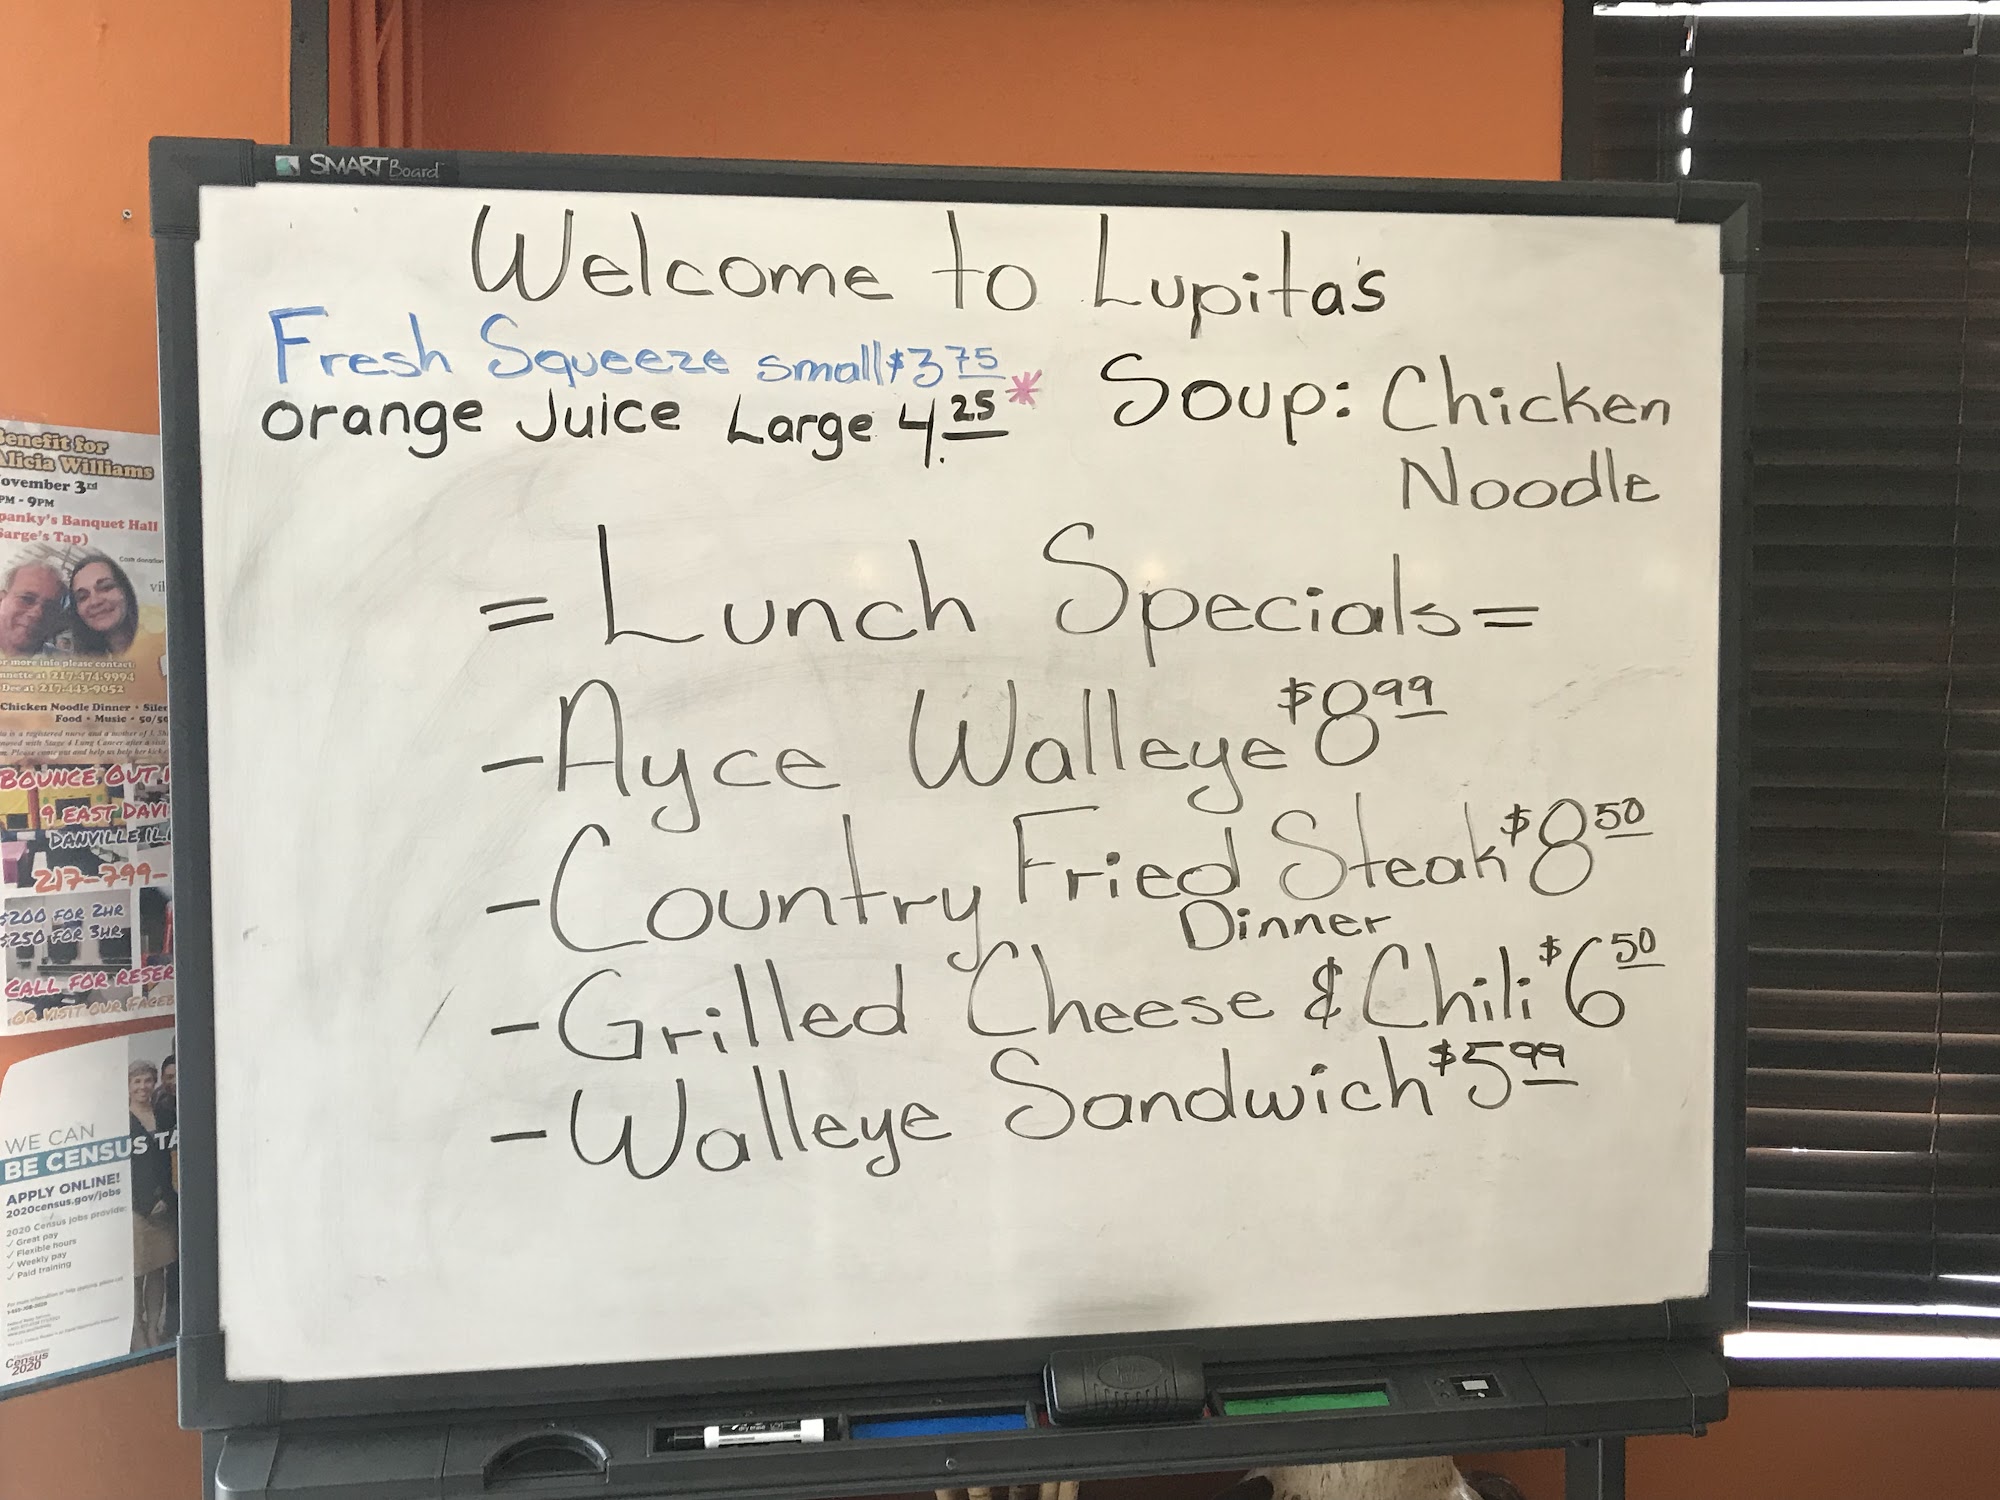 SMART Board
Welcome to Lupita's
Fresh Squeeze small $3 75
orange Juice Large 4.25 *
Soup: Chicken
Noodle
= Lunch Specials =
- Ayce Walleye $8 99
- Country Fried Steak $8 50
Dinner
- Grilled Cheese & Chili $6 50
- Walleye Sandwich $5 99
Benefit for
Alicia Williams
November 3rd
PM - 9PM
Banquet Hall
Sarge's Tap)
for more info please contact:
at 217-474-9994
Dee at 217-443-9052
Chicken Noodle Dinner •
Food • Music • 50/50
BOUNCE OUT
9 EAST
DANVILLE IL.
217-799-
$200 FOR 2HR
$250 FOR 3HR
CALL FOR
OR VISIT OUR
WE CAN
BE CENSUS
APPLY ONLINE!
2020census.gov/jobs
2020 Census jobs provide:
✓ Great pay
✓ Flexible hours
✓ Weekly pay
✓ Paid training
Census
2020